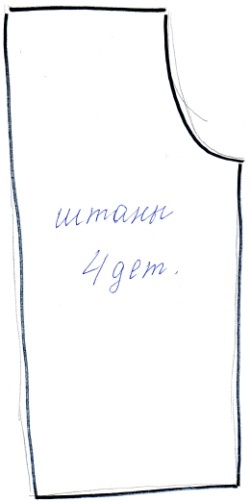 штаны
4 дет.